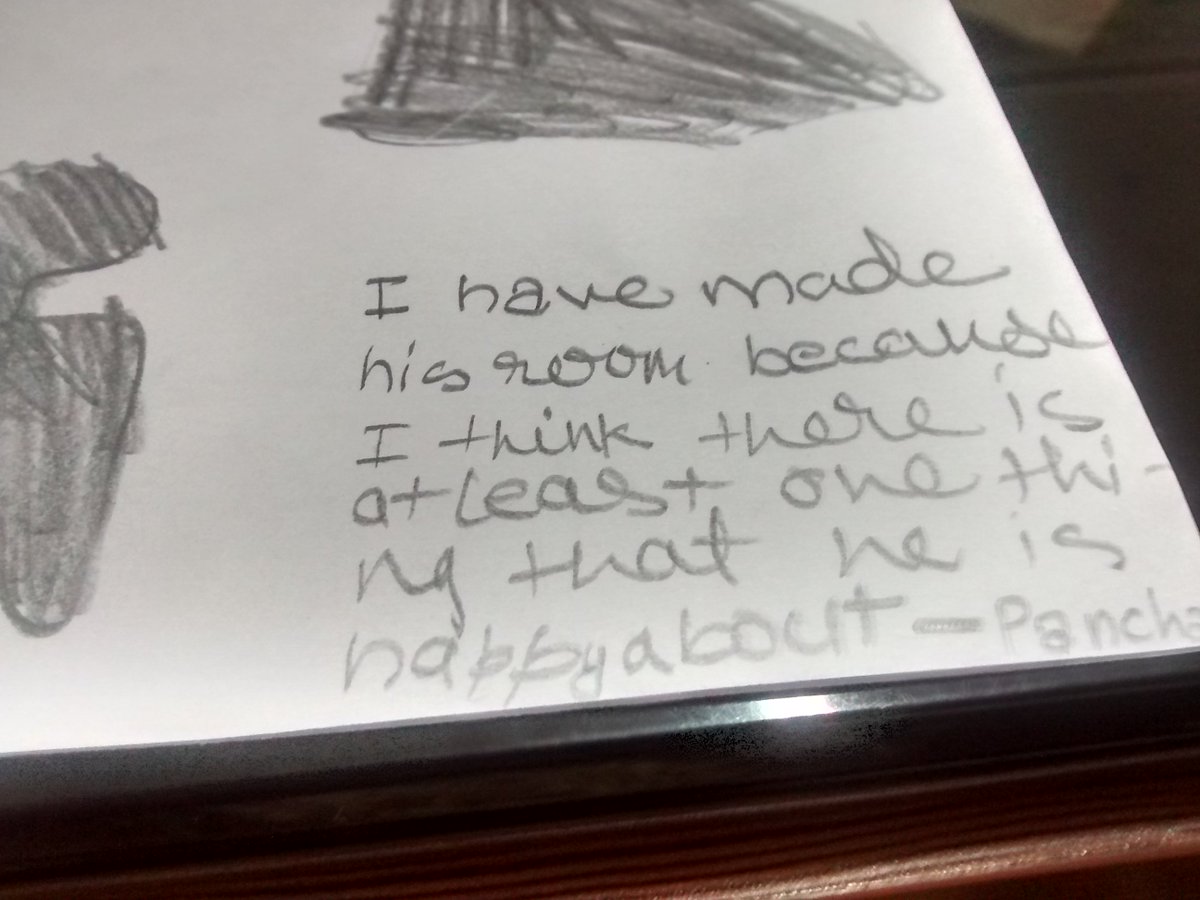 I have made
his room because
I think there is
atleast one thi-
ng that he is
happy about - Pancha